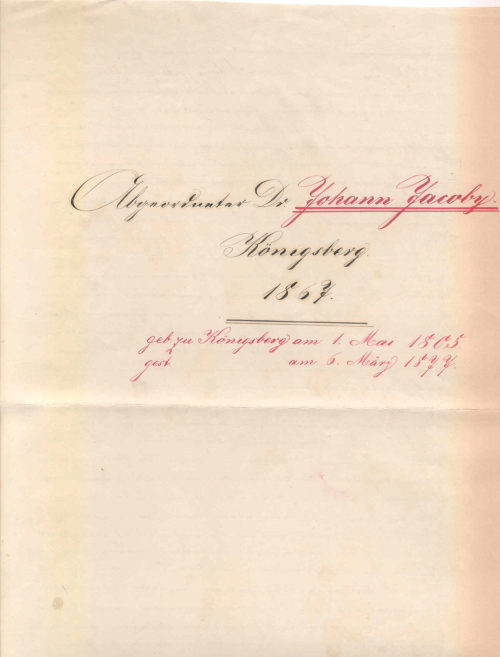 Abgeordneter Dr. Johann Jacoby.
Königsberg.
1867.
geb. zu Königsberg am 1. Mai 1805
gest. am 6. März 1877.